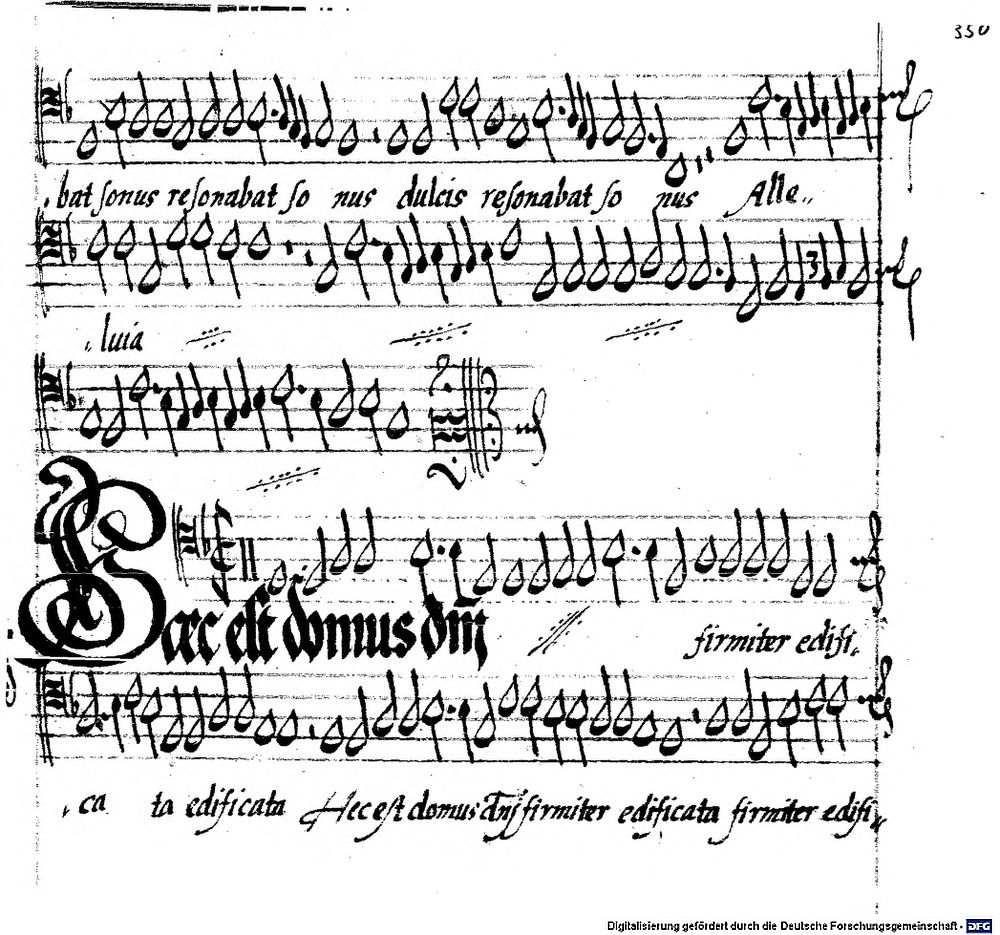 350
bat sonus resonabat so nus dulcis resonabat so nus Alle
luia
Hæc est domus dñi firmiter edifi
ca ta edificata Hec est domus dñj firmiter edificata firmiter edifi
Digitalisierung gefördert durch die Deutsche Forschungsgemeinschaft - DFG